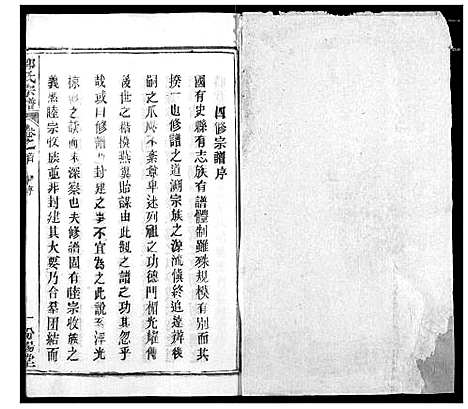 四修宗譜序
國有史縣有志族有譜體制雖殊規模有別而其
揆一也修譜之道溯宗族之源流愼終追遠辨後
嗣之爪瓞不紊尊卑述列祖之功德門楣光耀傳
後世之楷模燕翼貽謀由此觀之譜之功其忽乎
哉或曰修譜乃封建之事不宜為之此說系浮光
掠影之談而未深察也夫修譜固有睦宗收族之
義然睦宗收族並非封建其大要乃合羣團結而
氏宗譜
卷之首
一
汾陽堂